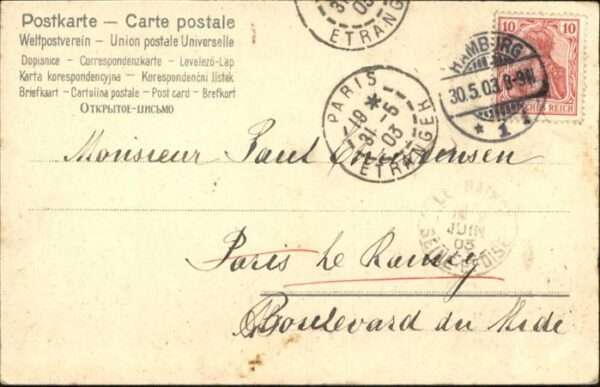 Postkarte — Carte postale
Weltpostverein – Union postale Universelle
Dopisnice – Correspondenzkarte – Levelező-Lap
Karta korespondencyjna – Korespondenční lístek
Briefkaart – Cartolina postale – Post card – Brefkort
Открытое-письмо
ETRANGER
10 10
HAMBURG
30.5.03.
* 1
REICH
PARIS
*
31 - 5
03
ETRANGER
Monsieur Paul Christensen
JUIN
03
SEINE-ET-OISE
Paris Le Raincy
Boulevard du Midi